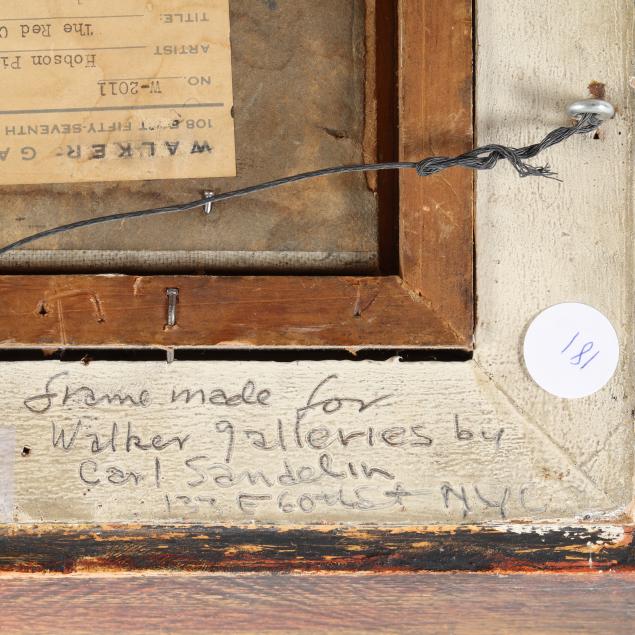 WALKER GA
108 EAST FIFTY-SEVENTH
NO. W-2011
ARTIST Hobson Pi
TITLE: The Red C
181
frame made for
Walker galleries by
Carl Sandelin
E 60th St NYC